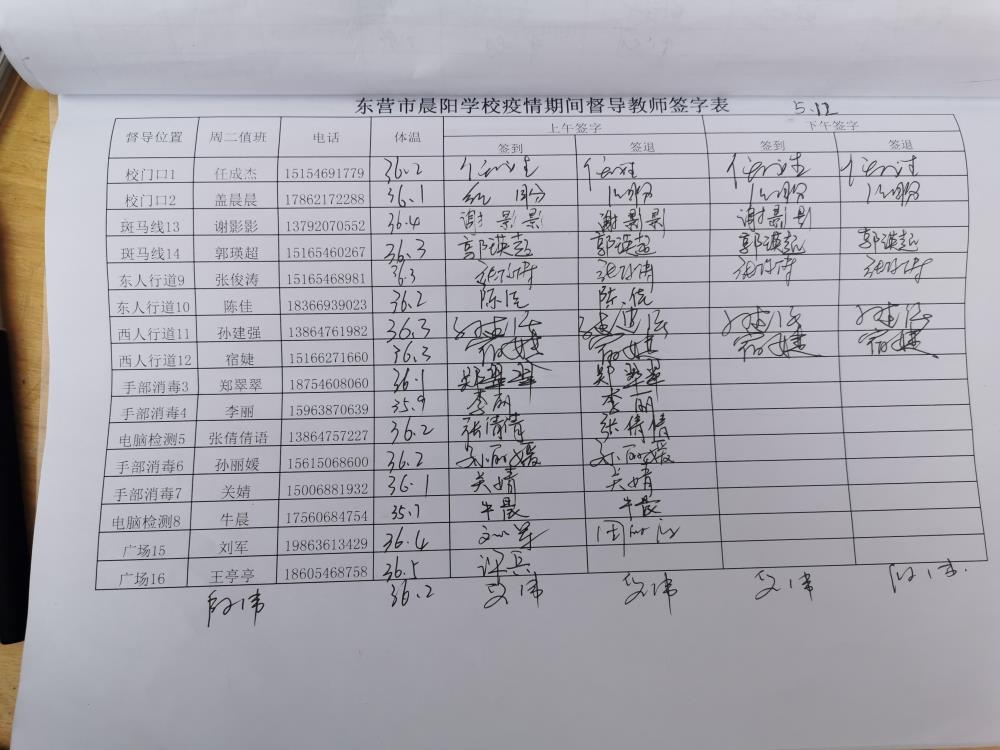 东营市晨阳学校疫情期间督导教师签字表 5.12
督导位置 周二值班 电话 体温 上午签字 下午签字
签到 签退 签到 签退
校门口1 任成杰 15154691779 36.2
校门口2 盖晨晨 17862172288 36.1
斑马线13 谢影影 13792070552 36.4 谢影影 谢影影 谢影影
斑马线14 郭瑛超 15165460267 36.3 郭瑛超 郭瑛超 郭瑛超 郭瑛超
东人行道9 张俊涛 15165468981 36.3
东人行道10 陈佳 18366939023 36.2
西人行道11 孙建强 13864761982 36.3
西人行道12 宿婕 15166271660 36.3 宿婕 宿婕 宿婕 宿婕
手部消毒3 郑翠翠 18754608060 36.1 郑翠翠 郑翠翠
手部消毒4 李丽 15963870639 35.9 李丽 李丽
电脑检测5 张倩倩语 13864757227 36.2 张倩倩 张倩倩
手部消毒6 孙丽媛 15615068600 36.2 孙丽媛 孙丽媛
手部消毒7 关婧 15006881932 36.1 关婧 关婧
电脑检测8 牛晨 17560684754 35.7 牛晨 牛晨
广场15 刘军 19863613429 36.4 刘军
广场16 王亭亭 18605468758 36.5
36.2